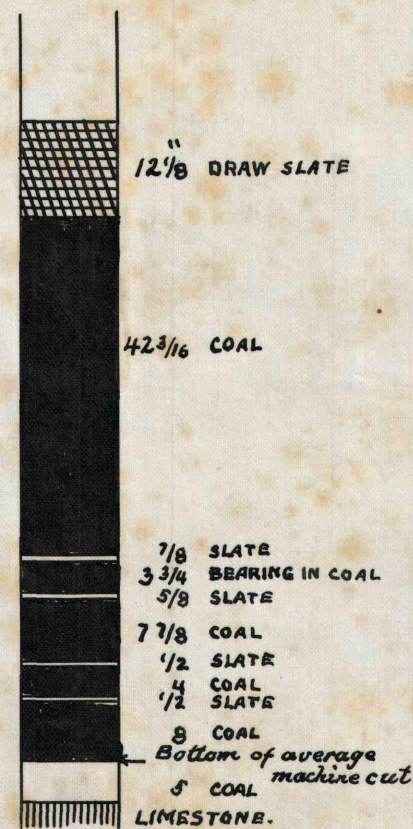 12 1/8" DRAW SLATE
42 3/16 COAL
7/8 SLATE
3 3/4 BEARING IN COAL
5/8 SLATE
7 7/8 COAL
1/2 SLATE
4 COAL
1/2 SLATE
8 COAL
Bottom of average
machine cut
5 COAL
LIMESTONE.